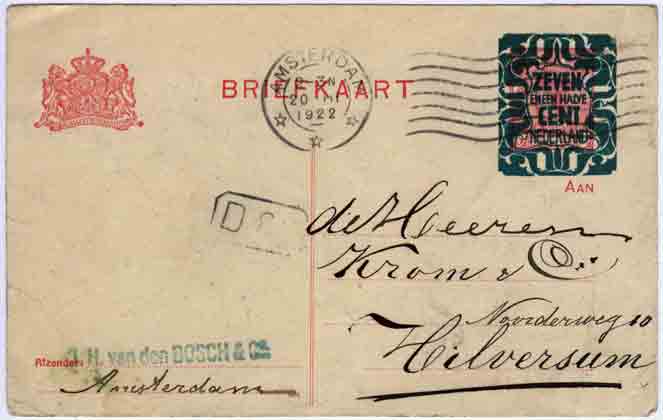 BRIEFKAART
AMSTERDAM
1922
ZEVEN
EN EEN HALVE
CENT
NEDERLAND
AAN
de Heeren
Krom & Co.
Noorderweg 10
Hilversum
Afzender:
H. van den BOSCH & Co.
Amsterdam